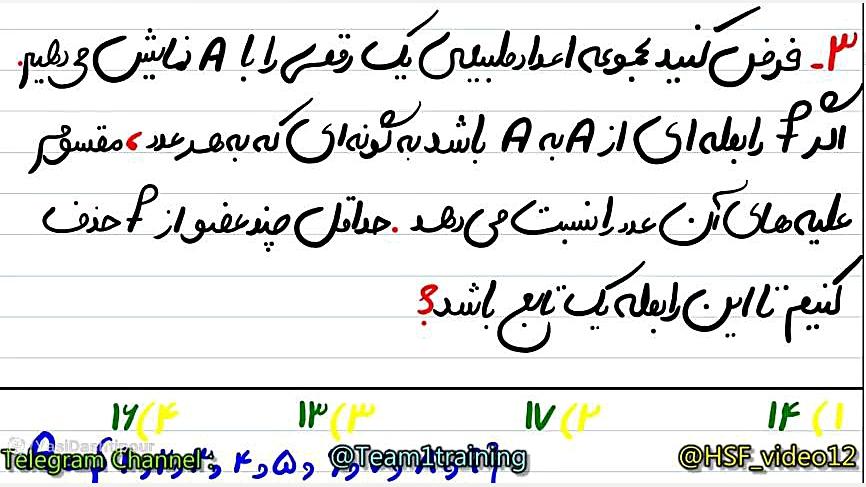 ۳- فرض کنید مجموعه اعداد طبیعی یک رقمی را با A نمایش می‌دهیم.
اگر f رابطه‌ای از A به A باشد به گونه‌ای که به هر عدد، مقسوم
علیه‌های آن عدد را نسبت می‌دهد. حداقل چند عضو از f حذف
کنیم تا این رابطه یک تابع باشد؟
۱) ۱۴ ۲) ۱۷ ۳) ۱۳ ۴) ۱۶
YasiDashtipour
Telegram Channel: @Team1training @HSF_video12